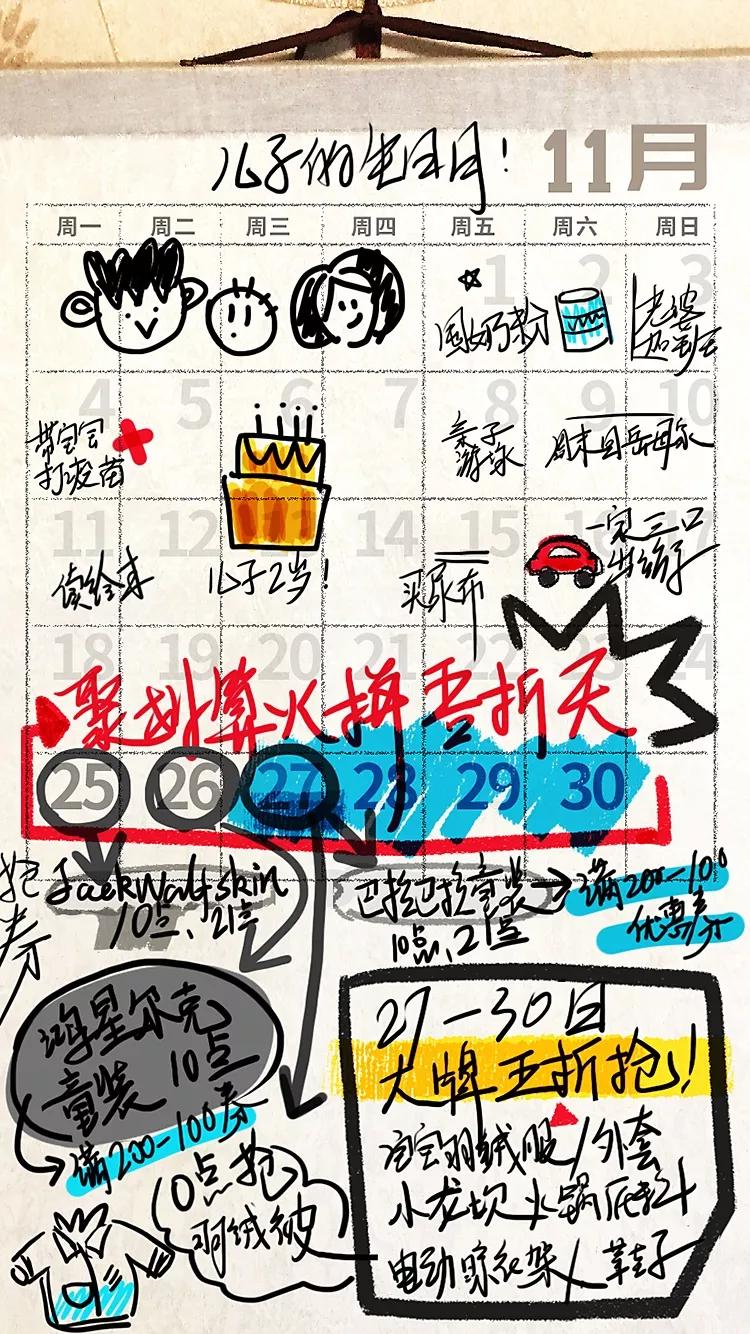 儿子的生日月! 11月
周一 周二 周三 周四 周五 周六 周日
1 2 3
囤奶粉
老婆
加班
4 5 6 7 8 9 10
带宝宝
打疫苗
亲子
游泳
周末回岳母家
11 12 13 14 15 16 17
读绘本
儿子2岁!
买尿布
一家三口
出游
18 19 20 21 22 23 24
聚划算火拼五折天
25 26 27 28 29 30
抢
券
Jack Wolfskin
10点、21点
巴拉巴拉童装
10点、21点
满200-100
优惠券
鸿星尔克
童装 10点
满200-100券
0点抢
羽绒被
27-30日
大牌五折抢!
宝宝羽绒服/外套
小龙坎火锅底料
电动晾衣架/鞋子